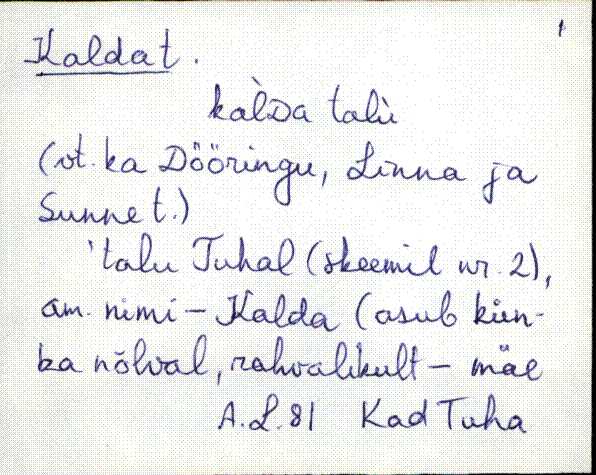 1
Kaldat.
kàlDa talù
(vt. ka Dööringu, Linna ja
Sunnet.)
'talu Tuhal (skeemil nr. 2),
am. nimi – Kalda (asub kün-
ka nõlval, rahvalikult – mäe
A.L. 81 Kad Tuha